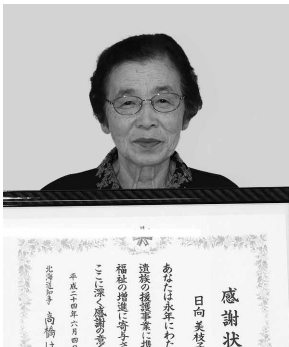 感謝状
日向 美枝子
あなたは永年にわた
遺族の援護事業に携
福祉の増進に寄与さ
ここに深く感謝の意
平成二十四年六月四日
北海道知事 高橋は